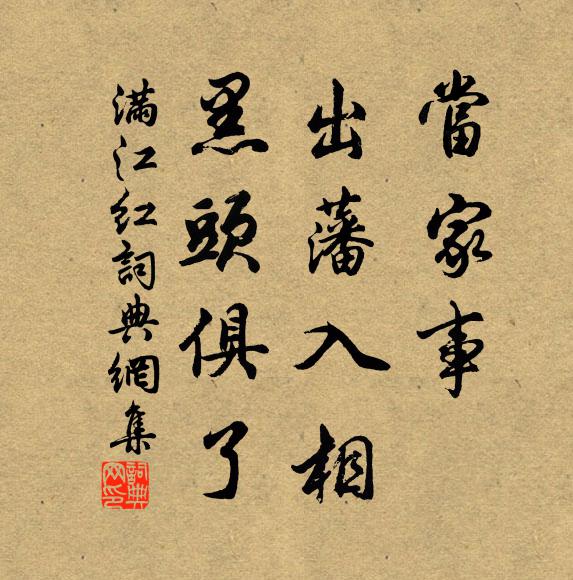 當家事
出藩入相
黑頭俱了
滿江紅詞典網集
詞典网印